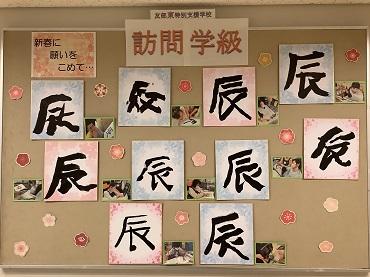 友部東特別支援学校
訪問学級
新春に
願いを
こめて…
辰
辰
辰
辰
辰
辰
辰
辰
辰
辰